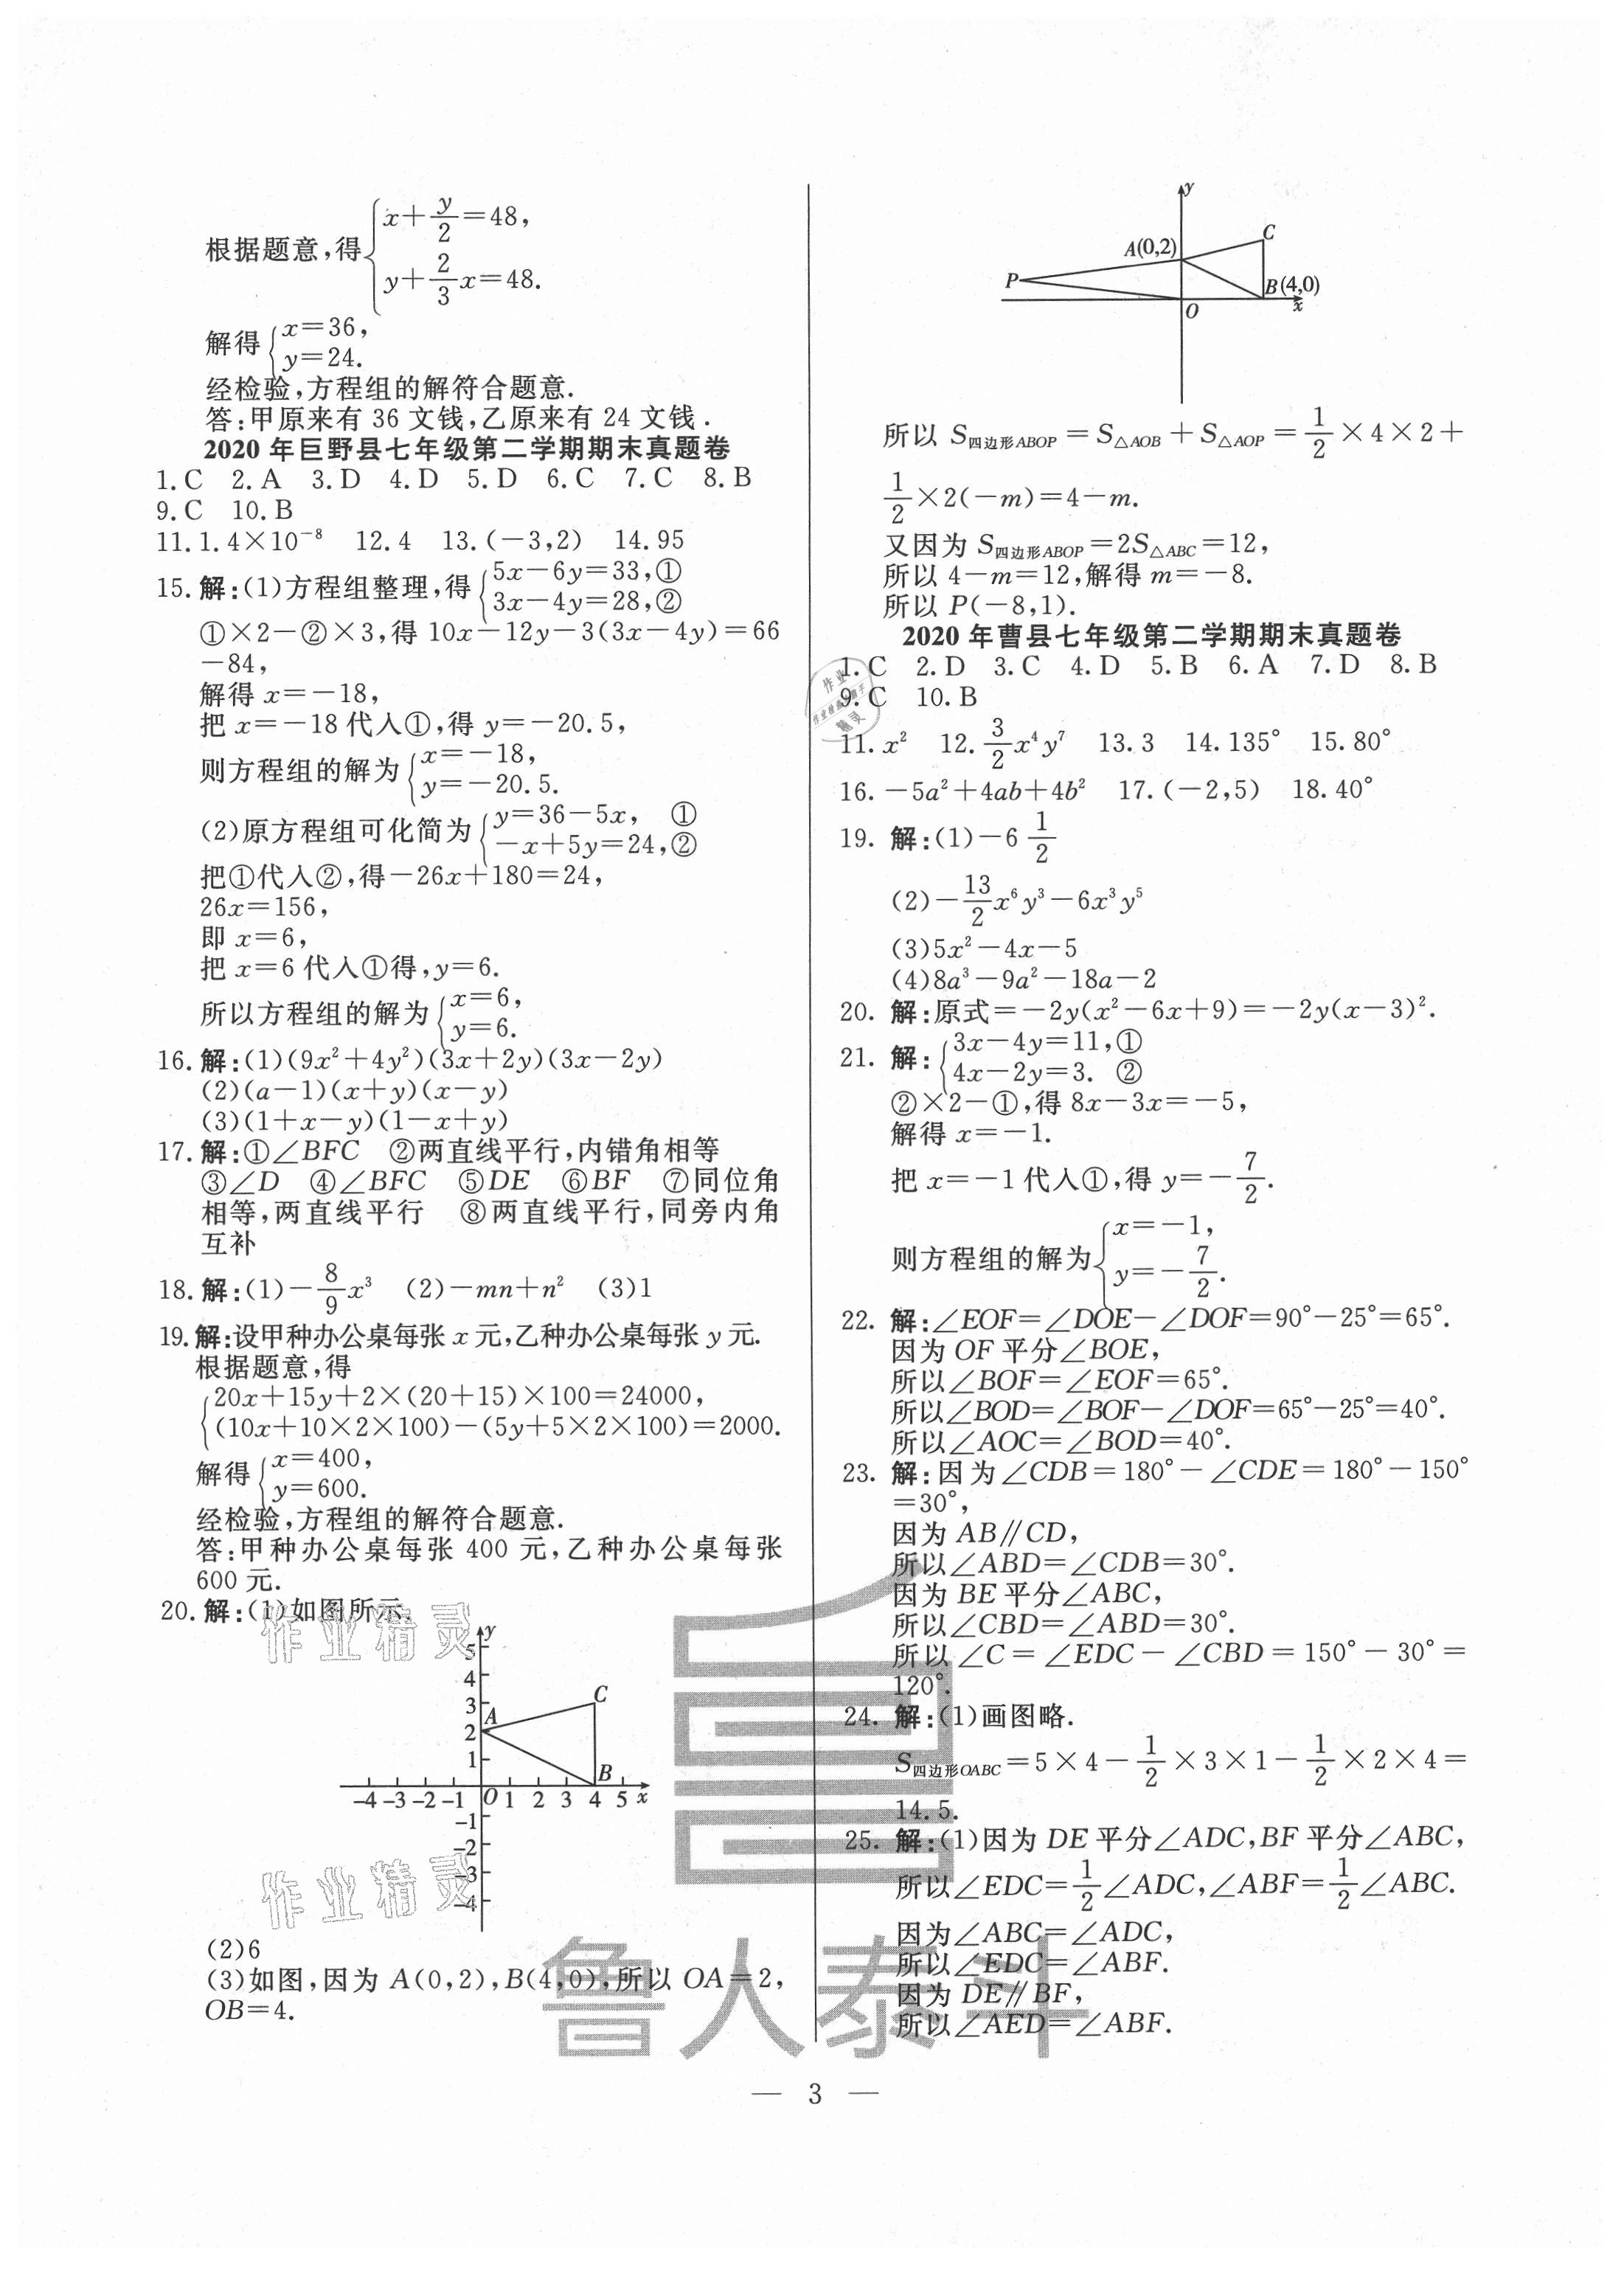 根据题意,得{x+y/2=48,
y+2/3x=48.
解得{x=36,
y=24.
经检验,方程组的解符合题意.
答:甲原来有 36 文钱,乙原来有 24 文钱.
2020 年巨野县七年级第二学期期末真题卷
1.C 2.A 3.D 4.D 5.D 6.C 7.C 8.B
9.C 10.B
11.1.4×10⁻⁸ 12.4 13.(-3,2) 14.95
15.解:(1)方程组整理,得{5x-6y=33,①
3x-4y=28,②
①×2-②×3,得 10x-12y-3(3x-4y)=66
-84,
解得 x=-18,
把 x=-18 代入①,得 y=-20.5,
则方程组的解为{x=-18,
y=-20.5.
(2)原方程组可化简为{y=36-5x, ①
-x+5y=24,②
把①代入②,得-26x+180=24,
26x=156,
即 x=6,
把 x=6 代入①得,y=6.
所以方程组的解为{x=6,
y=6.
16.解:(1)(9x²+4y²)(3x+2y)(3x-2y)
(2)(a-1)(x+y)(x-y)
(3)(1+x-y)(1-x+y)
17.解:①∠BFC ②两直线平行,内错角相等
③∠D ④∠BFC ⑤DE ⑥BF ⑦同位角
相等,两直线平行 ⑧两直线平行,同旁内角
互补
18.解:(1)-8/9x³ (2)-mn+n² (3)1
19.解:设甲种办公桌每张 x 元,乙种办公桌每张 y 元.
根据题意,得
{20x+15y+2×(20+15)×100=24000,
(10x+10×2×100)-(5y+5×2×100)=2000.
解得{x=400,
y=600.
经检验,方程组的解符合题意.
答:甲种办公桌每张 400 元,乙种办公桌每张
600 元.
20.解:(1)如图所示.
作业精灵
y
5
4
3
2
1
A
C
B
-4 -3 -2 -1 O 1 2 3 4 5 x
-1
-2
-3
-4
作业精灵
(2)6
(3)如图,因为 A(0,2),B(4,0),所以 OA=2,
OB=4.
y
C
A(0,2)
P
B(4,0)
O
x
所以 S四边形ABOP=S△AOB+S△AOP=1/2×4×2+
1/2×2(-m)=4-m.
又因为 S四边形ABOP=2S△ABC=12,
所以 4-m=12,解得 m=-8.
所以 P(-8,1).
2020 年曹县七年级第二学期期末真题卷
1.C 2.D 3.C 4.D 5.B 6.A 7.D 8.B
9.C 10.B
11.x² 12.3/2x⁴y⁷ 13.3 14.135° 15.80°
16.-5a²+4ab+4b² 17.(-2,5) 18.40°
19. 解:(1)-6 1/2
(2)-13/2x⁶y³-6x³y⁵
(3)5x²-4x-5
(4)8a³-9a²-18a-2
20. 解:原式=-2y(x²-6x+9)=-2y(x-3)².
21. 解:{3x-4y=11,①
4x-2y=3. ②
②×2-①,得 8x-3x=-5,
解得 x=-1.
把 x=-1 代入①,得 y=-7/2.
则方程组的解为{x=-1,
y=-7/2.
22. 解:∠EOF=∠DOE-∠DOF=90°-25°=65°.
因为 OF 平分∠BOE,
所以∠BOF=∠EOF=65°.
所以∠BOD=∠BOF-∠DOF=65°-25°=40°.
所以∠AOC=∠BOD=40°.
23. 解:因为∠CDB=180°-∠CDE=180°-150°
=30°,
因为 AB∥CD,
所以∠ABD=∠CDB=30°.
因为 BE 平分∠ABC,
所以∠CBD=∠ABD=30°.
所以∠C=∠EDC-∠CBD=150°-30°=
120°.
24. 解:(1)画图略.
S四边形OABC=5×4-1/2×3×1-1/2×2×4=
14.5.
25. 解:(1)因为 DE 平分∠ADC,BF 平分∠ABC,
所以∠EDC=1/2∠ADC,∠ABF=1/2∠ABC.
因为∠ABC=∠ADC,
所以∠EDC=∠ABF.
因为 DE∥BF,
所以∠AED=∠ABF.
鲁人泰斗
— 3 —